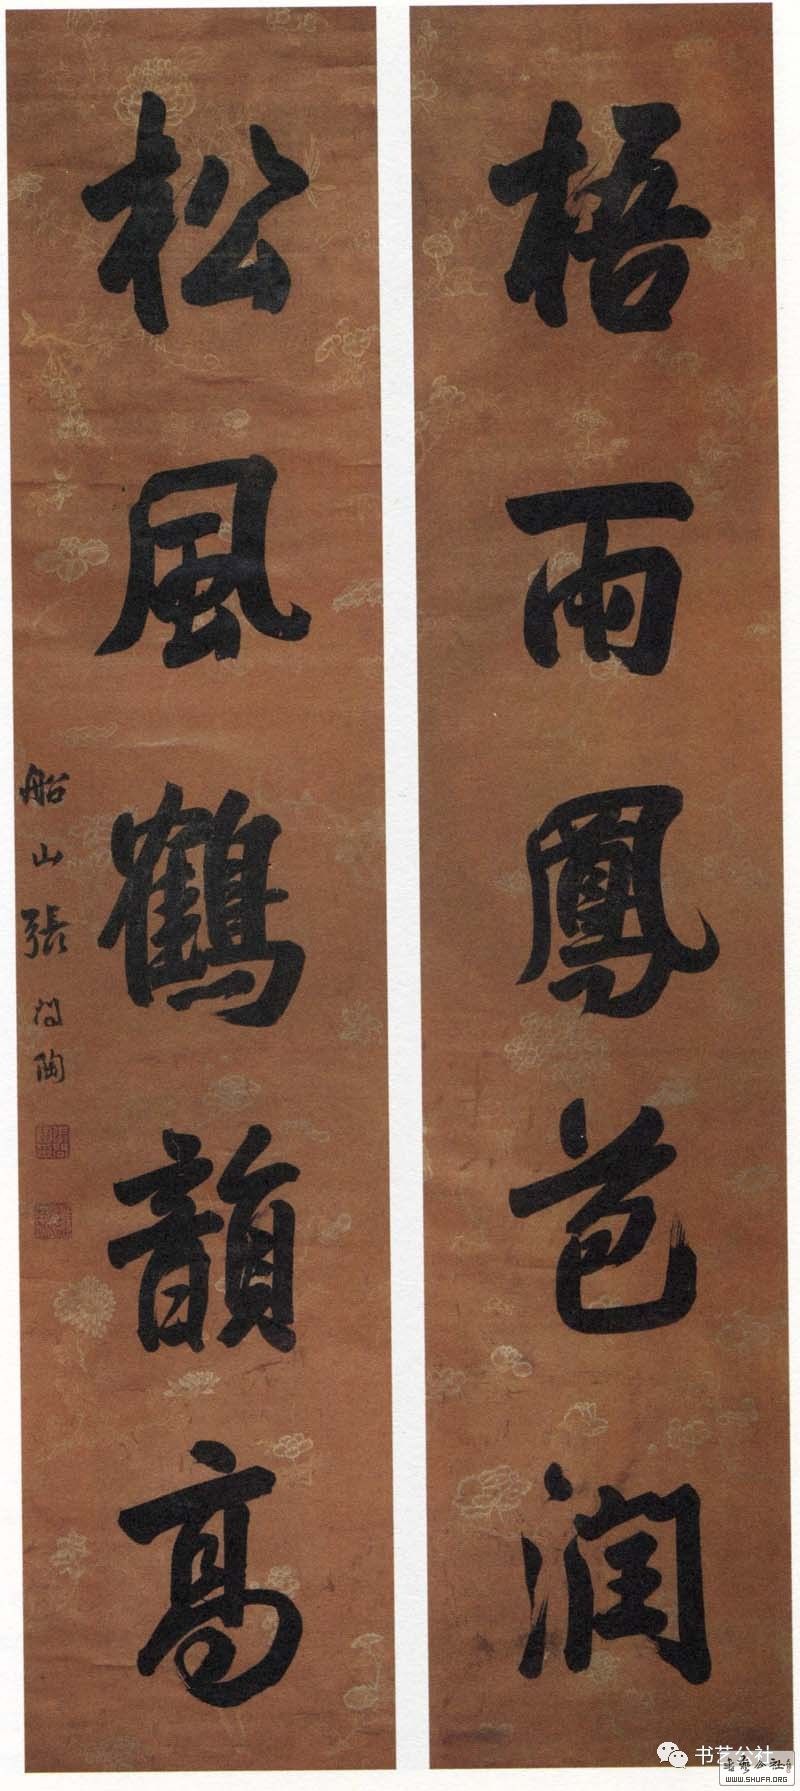 梧雨鳳苞潤
松風鶴韻高
船山張問陶
书艺公社
WWW.SHUFA.ORG